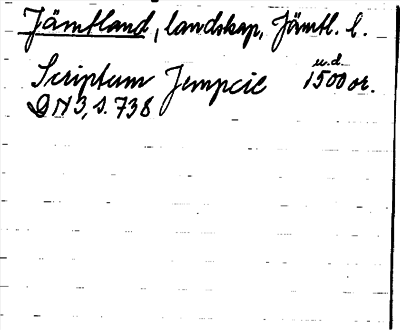 Jämtland, landskap, Jämtl. l.
u.d.
Scriptum Jempcie 1500 or.
DN 3, s. 738